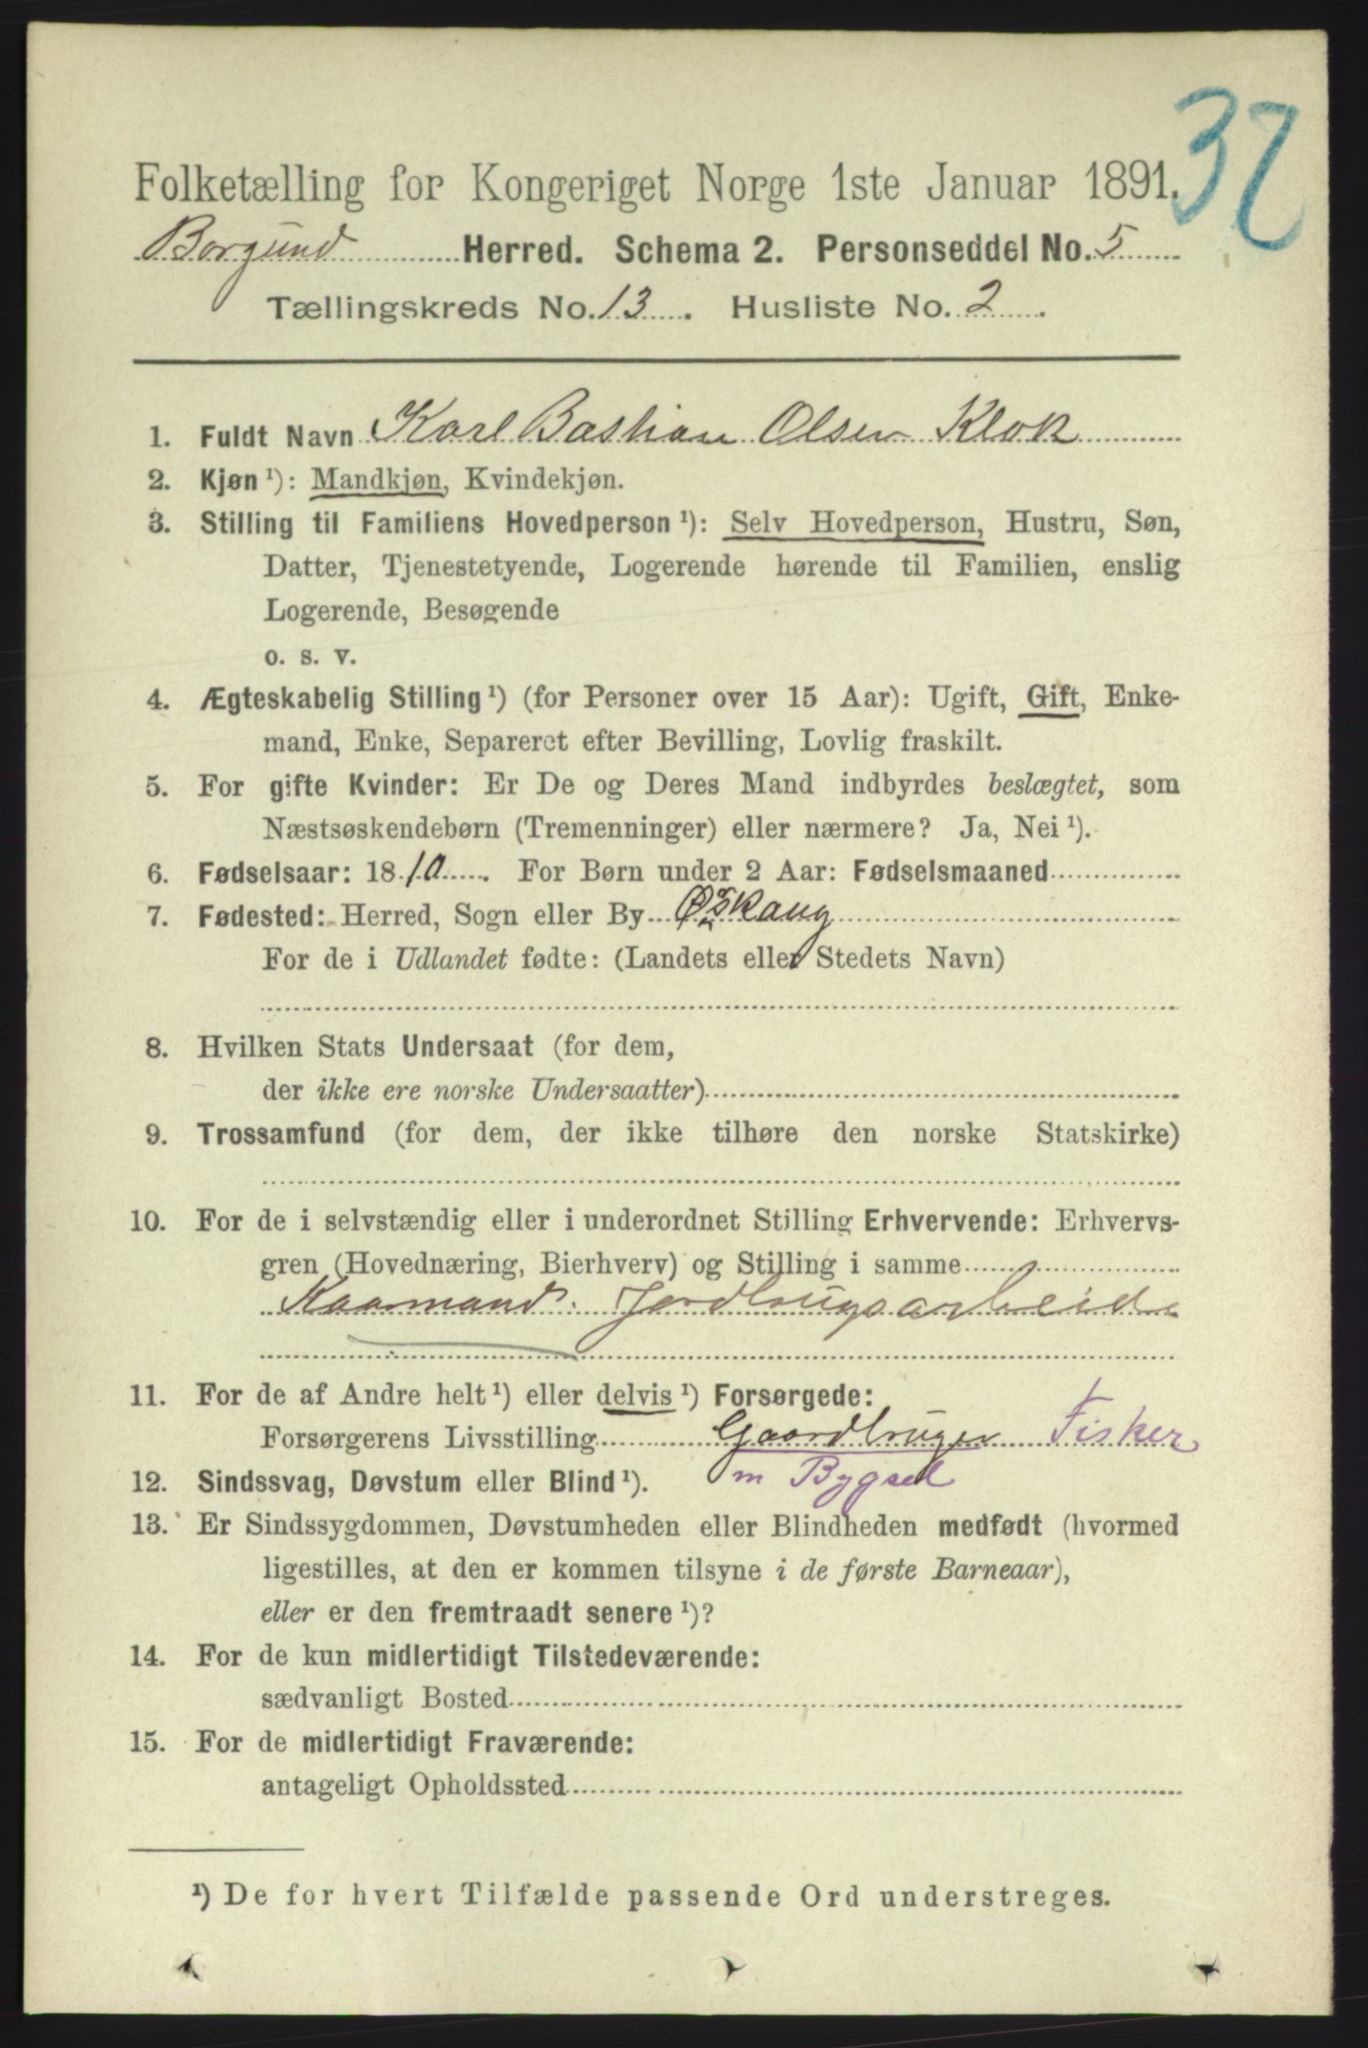 32
Folketælling for Kongeriget Norge 1ste Januar 1891.
Borgund Herred. Schema 2. Personseddel No. 5
Tællingskreds No. 13. Husliste No. 2.
1. Fuldt Navn Karl Bastian Olsen Klok
2. Kjøn ¹): Mandkjøn, Kvindekjøn.
3. Stilling til Familiens Hovedperson ¹): Selv Hovedperson, Hustru, Søn,
Datter, Tjenestetyende, Logerende hørende til Familien, enslig
Logerende, Besøgende
o. s. v.
4. Ægteskabelig Stilling ¹) (for Personer over 15 Aar): Ugift, Gift, Enke-
mand, Enke, Separeret efter Bevilling, Lovlig fraskilt.
5. For gifte Kvinder: Er De og Deres Mand indbyrdes beslægtet, som
Næstsøskendebørn (Tremenninger) eller nærmere? Ja, Nei ¹).
6. Fødselsaar: 1810. For Børn under 2 Aar: Fødselsmaaned
7. Fødested: Herred, Sogn eller By Ørskaug
For de i Udlandet fødte: (Landets eller Stedets Navn)
8. Hvilken Stats Undersaat (for dem,
der ikke ere norske Undersaatter)
9. Trossamfund (for dem, der ikke tilhøre den norske Statskirke)
10. For de i selvstændig eller i underordnet Stilling Erhvervende: Erhvervs-
gren (Hovednæring, Bierhverv) og Stilling i samme
Kaarmand. Jordbrugsarbeide
11. For de af Andre helt ¹) eller delvis ¹) Forsørgede:
Forsørgerens Livsstilling Gaardbruger Fisker
m Bygsel
12. Sindssvag, Døvstum eller Blind ¹).
13. Er Sindssygdommen, Døvstumheden eller Blindheden medfødt (hvormed
ligestilles, at den er kommen tilsyne i de første Barneaar),
eller er den fremtraadt senere ¹)?
14. For de kun midlertidigt Tilstedeværende:
sædvanligt Bosted
15. For de midlertidigt Fraværende:
antageligt Opholdssted
¹) De for hvert Tilfælde passende Ord understreges.